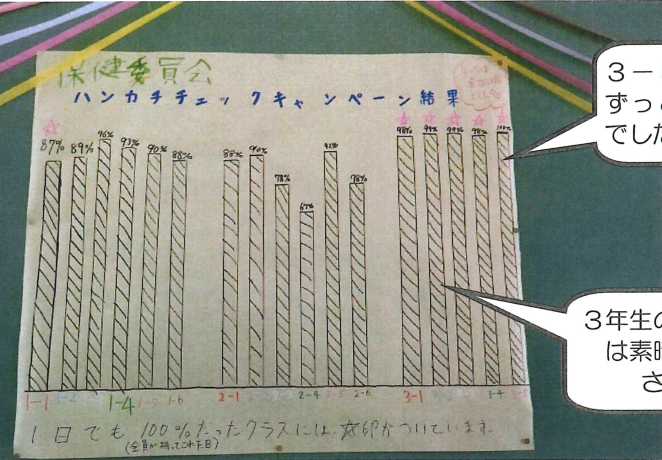 保健委員会
ハンカチチェックキャンペーン結果
87% 89% 96% 93% 90% 88% 88% 90% 78% 67% 91% 78% 98% 99% 99% 98% 100%
1-1 1-2 1-3 1-4 1-5 1-6 2-1 2-4 2-5 2-6 3-1 3-4 3-5
1日でも100%だったクラスには☆印がついています
(全員が持ってこれた日)
3-
ずっと
でした
3年生の
は素晴
さ